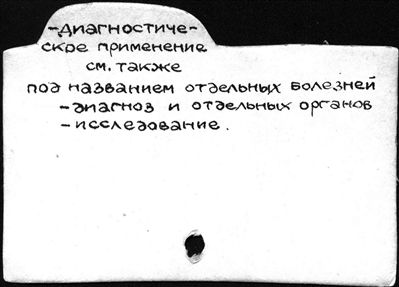 -Диагностиче-
ское применение
см. также
под названием отдельных болезней
-диагноз и отдельных органов
-исследование.